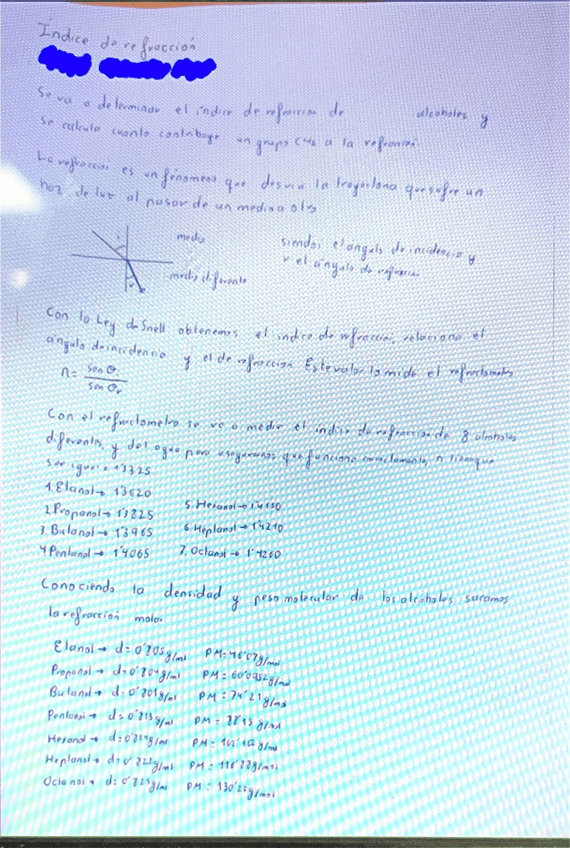 Indice de refracción
Se va a determinar el índice de refracción de alcoholes y
se calcula cuanto contribuye un grupo CH2 a la refracción.
La refracción es un fenómeno que desvia la trayectoria que sufre un
haz de luz al pasar de un medio a otro
medio
medio diferente
siendo i el angulo de incidencia y
r el ángulo de refracción
Con la Ley de Snell obtenemos el indice de refracción, relaciona el
ángulo de incidencia y el de refracción. Este valor lo mide el refractometro
n = sen θi / sen θr
Con el refractometro se va a medir el indice de refraccion de 8 alcoholes
diferentes, y del agua para asegurarnos que funciona correctamente, n tiene que
ser igual a 1'3325
1. Etanol → 1'3620
2. Propanol → 1'3825
3. Butanol → 1'3965
4. Pentanol → 1'4065
5. Hexanol → 1'4150
6. Heptanol → 1'4210
7. Octanol → 1'4260
Conociendo la densidad y peso molecular de los alcoholes, sacamos
la refracción molar
Etanol → d = 0'805 g/ml PM = 46'07 g/mol
Propanol → d = 0'804 g/ml PM = 60'0952 g/mol
Butanol → d = 0'801 g/ml PM = 74'21 g/mol
Pentanol → d = 0'813 g/ml PM = 88'15 g/mol
Hexanol → d = 0'814 g/ml PM = 102'162 g/mol
Heptanol → d = 0'822 g/ml PM = 116'88 g/mol
Octanol → d = 0'825 g/ml PM = 130'23 g/mol